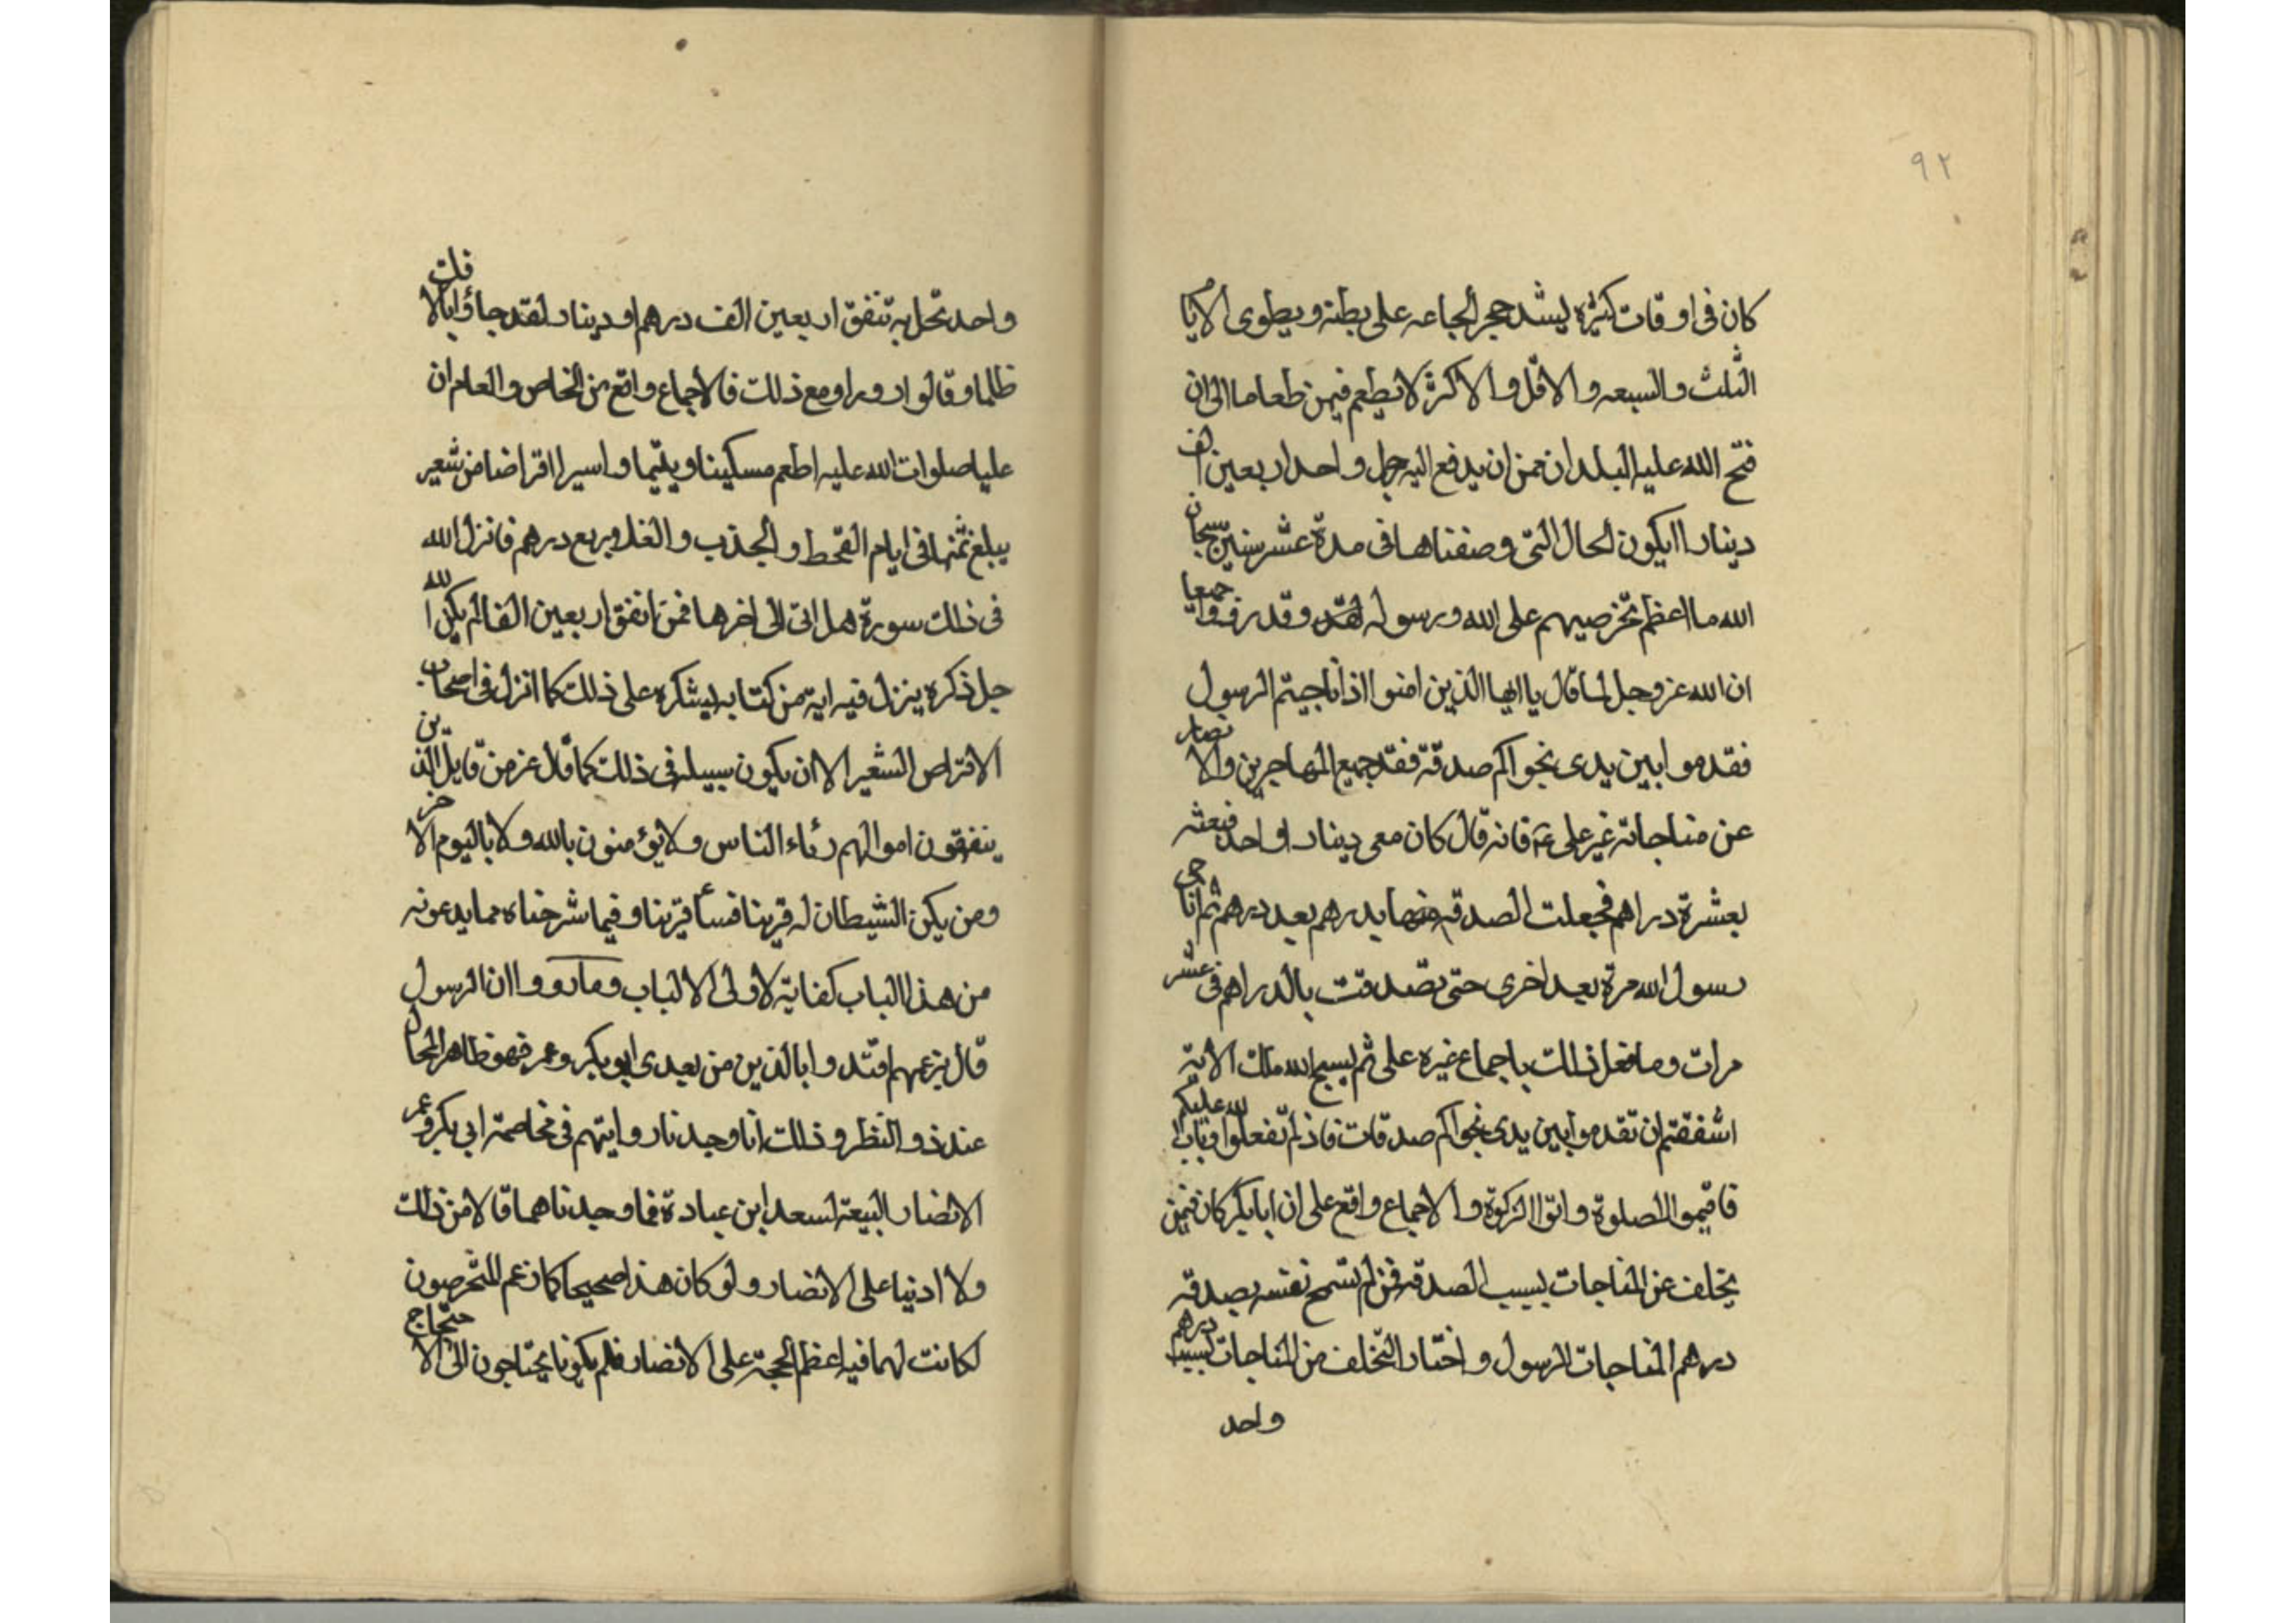 ٩٢
كان فى اوقات كثيرة ليشد حجر المجاعه على بطنه ويطوى الايام
الثلث والسبعه والاقل والاكثر لا يطعم فيهن طعاما الى ان
فتح الله عليه البلدان فمن ان يدفع اليه حمل واحد اربعين الف
دينار ايكون الحال التى وصفناها فى مدة عشر سنين سبحان
الله ما اعظم تخرصيهم على الله ورسوله لقد وقد رفوا جمعيا
ان الله عز وجل لما قال يا ايها الذين امنوا اذا ناجيتم الرسول
فقدموا بين يدى نجواكم صدقة فقد جميع المهاجرين والانصار
عن مناجاته غير على عم فانه قال كان معى دينارا واحد فبعته
بعشرة دراهم فجعلت الصدقه منها بدرهم بعد درهم ثم اناجى
رسول الله مرة بعد اخرى حتى تصدقت بالدراهم فى عشر
مرات وما فعل ذلك باجماع غيره على ثم الله تلك الاية
اشفقتم ان تقدموا بين يدى نجواكم صدقات فاذ لم تفعلوا وتاب الله عليكم
فاقيموا الصلوة واتوا الزكوة والاجماع واقع على ان ابا بكر كان فيمن
تخلف عن المناجات بسبب الصدقه فمن لم تسمح نفسه بصدقه
درهم المناجات الرسول واختار التخلف من المناجات لسبب درهم
واحد
واحد تحل به تنفق اربعين الف درهم او دينار لقد جاؤا بالافك
ظلما وقالوا زورا ومع ذلك فالاجماع واقع من الخاص والعام ان
عليا صلوات الله عليه اطعم مسكينا ويتيما واسيرا اقراضا من شعير
يبلغ ثمنها فى ايام القحط والجذب والغلا وربع درهم فانزل الله
فى ذلك سورة هل اتى الى اخرها فمن انفق اربعين الفا لم يكن الله
جل ذكره ينزل فيه اية من كتابه ليشكره على ذلك كما انزل فى اصحاب
الاقراص الشعير الا ان يكون سبيله فى ذلك كما قال عز من قايل الذين
ينفقون اموالهم رئاء الناس ولا يؤمنون بالله ولا باليوم الاخر
ومن يكن الشيطان له قرينا فسأ قرينا وفيما شرحناه مما يدعونه
من هذا الباب كفاية لاولى الالباب وما رووا ان الرسول
قال بزعمهم اقتدوا بالذين من بعدى ابو بكر وعمر فهو ظاهر المحال
عند ذو النظر وذلك انا وجدنا روايتهم فى مخاصمة ابى بكر وعمر
الانصار البيعة لسعد ابن عبادة فما وجدناهما قالا من ذلك
ولا ادنيا على الانصار ولو كان هذا صحيحا كما زعم المتخرصون
لكانت لهما فيه اعظم الحجة على الانصار فلم يكونا يحتاجون الى الاحتجاج